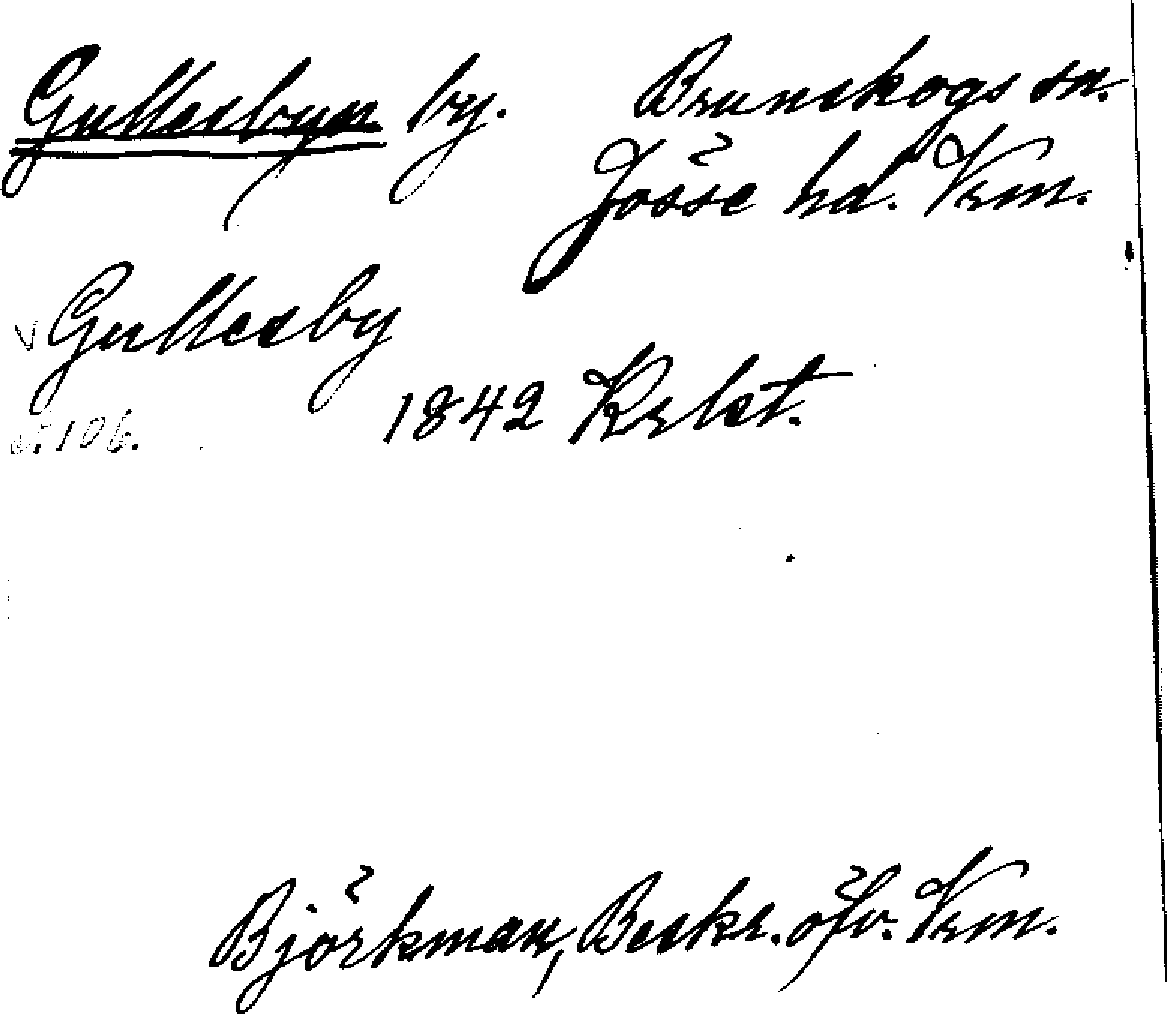 Gullesbyn by. Brunskogs sn.
Jösse hd. Vrm.
v Gullesby
1842 Krlst.
s. 106.
Björkman, Beskr. öfv. Vrm.